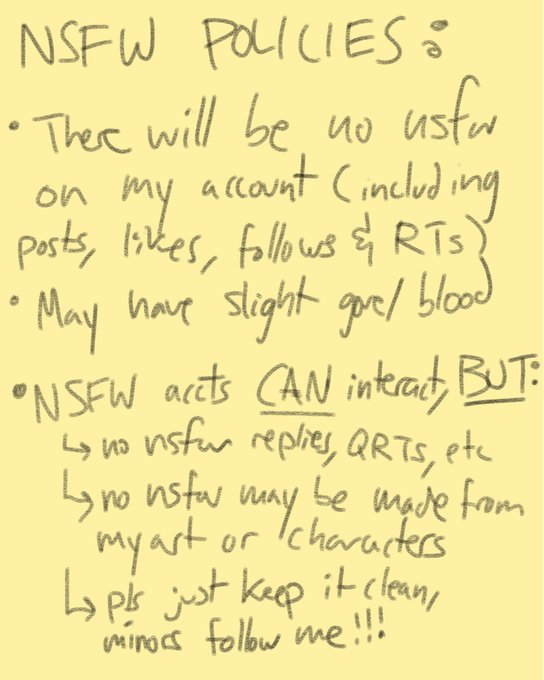 NSFW POLICIES:
• There will be no nsfw
on my account (including
posts, likes, follows & RTs)
• May have slight gore/blood
• NSFW accts CAN interact, BUT:
↳ no nsfw replies, QRTs, etc
↳ no nsfw may be made from
my art or characters
↳ pls just keep it clean,
minors follow me!!!